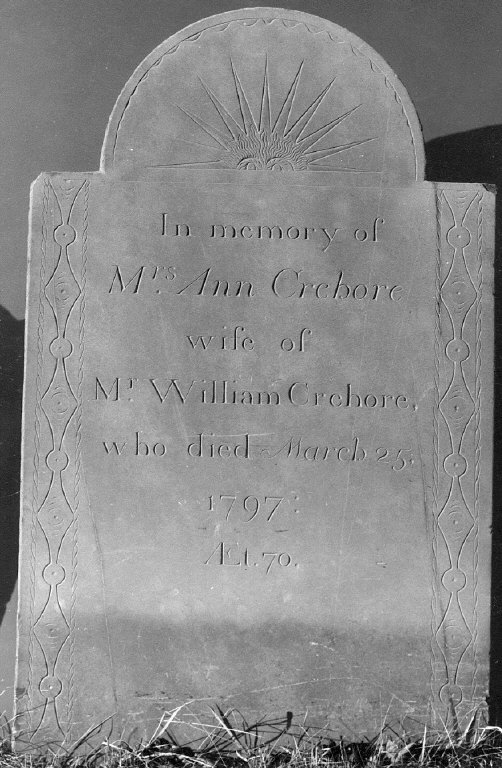 In memory of
Mrs. Ann Crehore
wife of
Mr. William Crehore,
who died March 25,
1797:
Æt. 70.